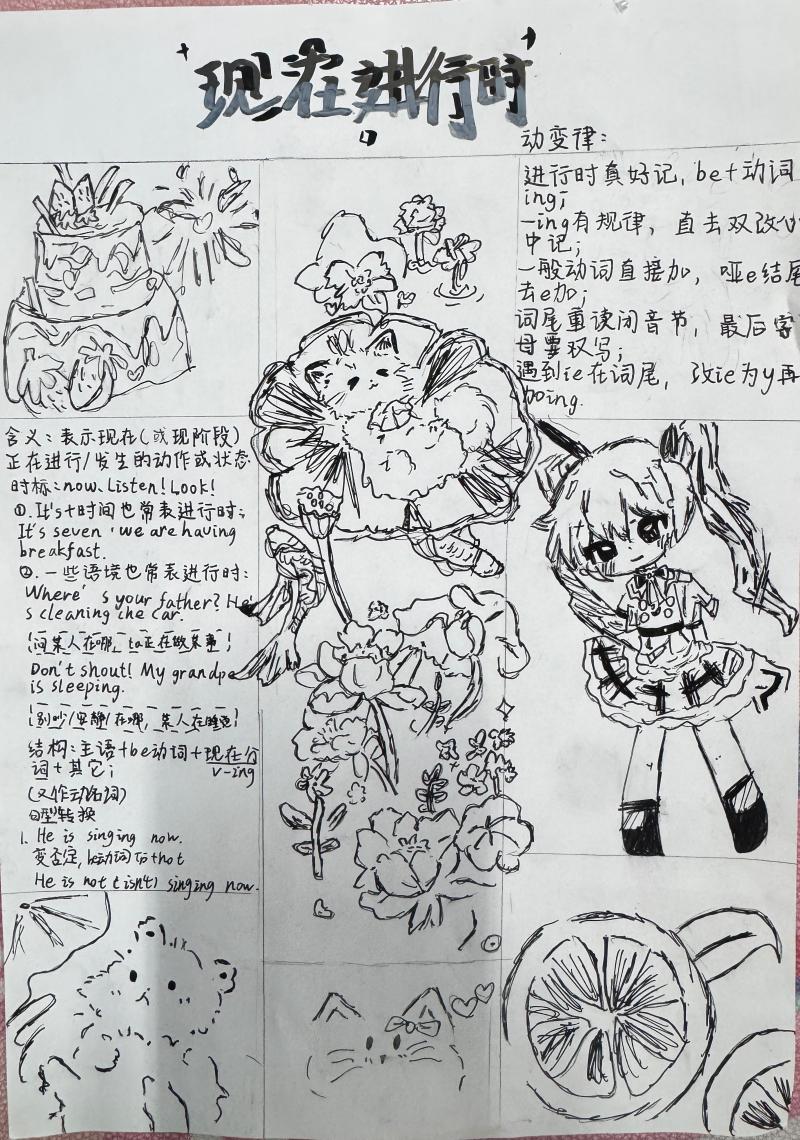 现在进行时
动变律：
进行时真好记，be+动词
ing；
-ing有规律，直去双改
中记；
一般动词直接加，哑e结尾
去e加；
词尾重读闭音节，最后字
母要双写；
遇到ie在词尾，改ie为y再
加ing.
含义：表示现在（或现阶段）
正在进行/发生的动作或状态
时标：now、Listen！Look！
①.It's+时间也常表进行时：
It's seven，we are having
breakfast.
②.一些语境也常表进行时：
Where's your father? He'
s cleaning the car.
（问某人在哪，ta正在做某事）
Don't shout! My grandpa
is sleeping.
（别吵/安静/在哪，某人在睡觉）
结构：主语+be动词+现在分
词+其它；
v-ing
（又作动名词）
句型转换
1. He is singing now.
变否定，be动词后+not
He is not (isn't) singing now.